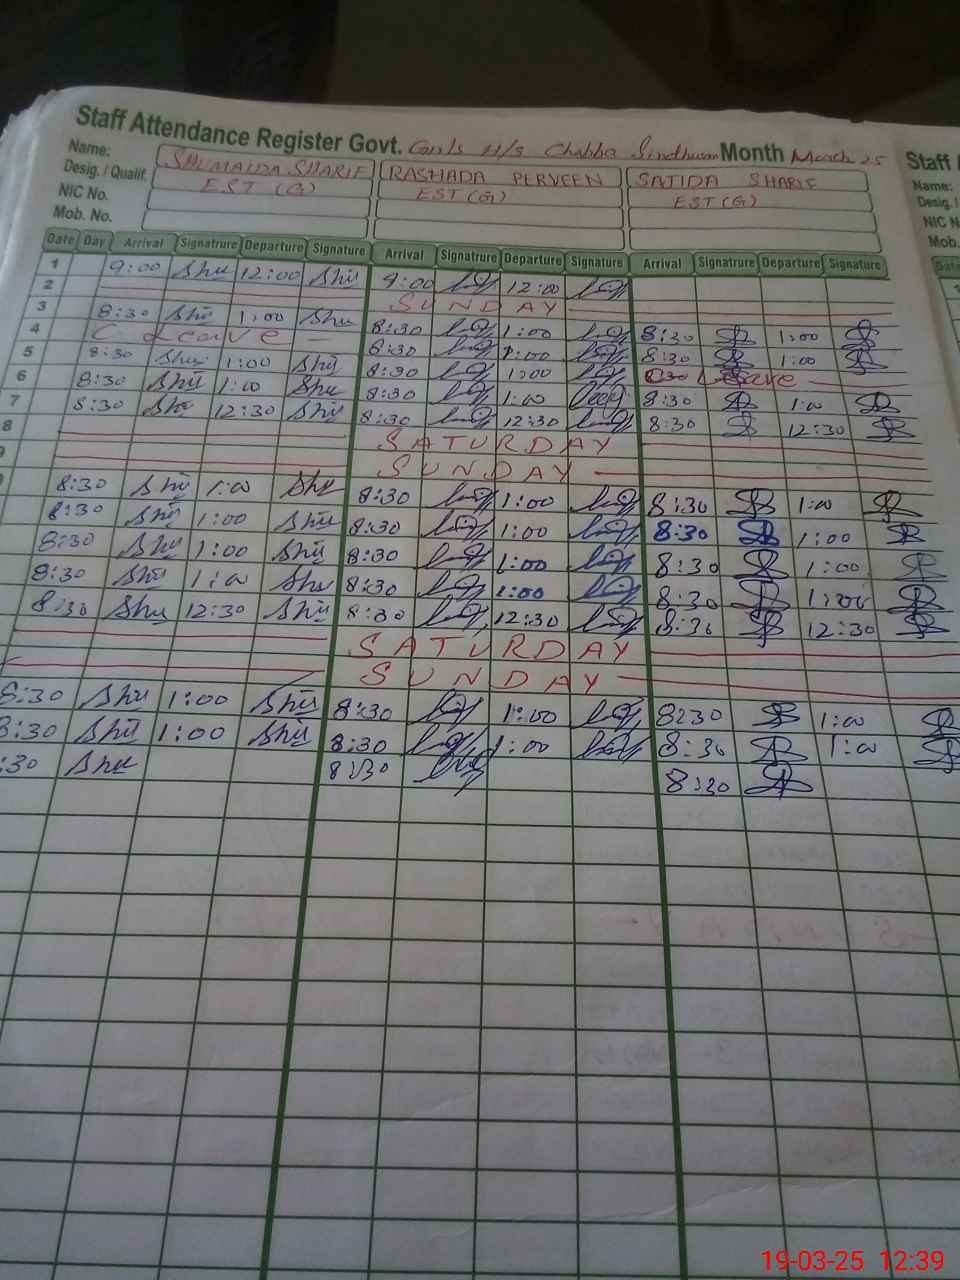 Staff Attendance Register Govt. Girls H/S Chabba Sindhwan Month March 25 Staff
Name: SHUMAIDA SHARIF RASHADA PERVEEN SAJIDA SHARIF Name:
Desig. / Qualif. EST (G) EST (G) EST (G) Desig. /
NIC No. NIC N
Mob. No. Mob.
Date Day Arrival Signatrure Departure Signature Arrival Signatrure Departure Signature Arrival Signatrure Departure Signature Date
1 9:00 Shu 12:00 Shu 9:00 12:00
2 SUNDAY
3 8:30 Shu 1:00 Shu 8:30 1:00 8:30 1:00
4 C Leave 8:30 1:00 8:30 1:00
5 8:30 Shu 1:00 Shu 8:30 1:00 Leave
6 8:30 Shu 1:00 Shu 8:30 1:00 8:30 1:00
7 8:30 Shu 12:30 Shu 8:30 12:30 8:30 12:30
8 SATURDAY
SUNDAY
8:30 Shu 1:00 Shu 8:30 1:00 8:30 1:00
8:30 Shu 1:00 Shu 8:30 1:00 8:30 1:00
8:30 Shu 1:00 Shu 8:30 1:00 8:30 1:00
8:30 Shu 1:00 Shu 8:30 1:00 8:30 1:00
8:30 Shu 12:30 Shu 8:30 12:30 8:30 12:30
SATURDAY
SUNDAY
8:30 Shu 1:00 Shu 8:30 1:00 8:30 1:00
8:30 Shu 1:00 Shu 8:30 1:00 8:30 1:00
:30 Shu 8:30 8:30
19-03-25 12:39